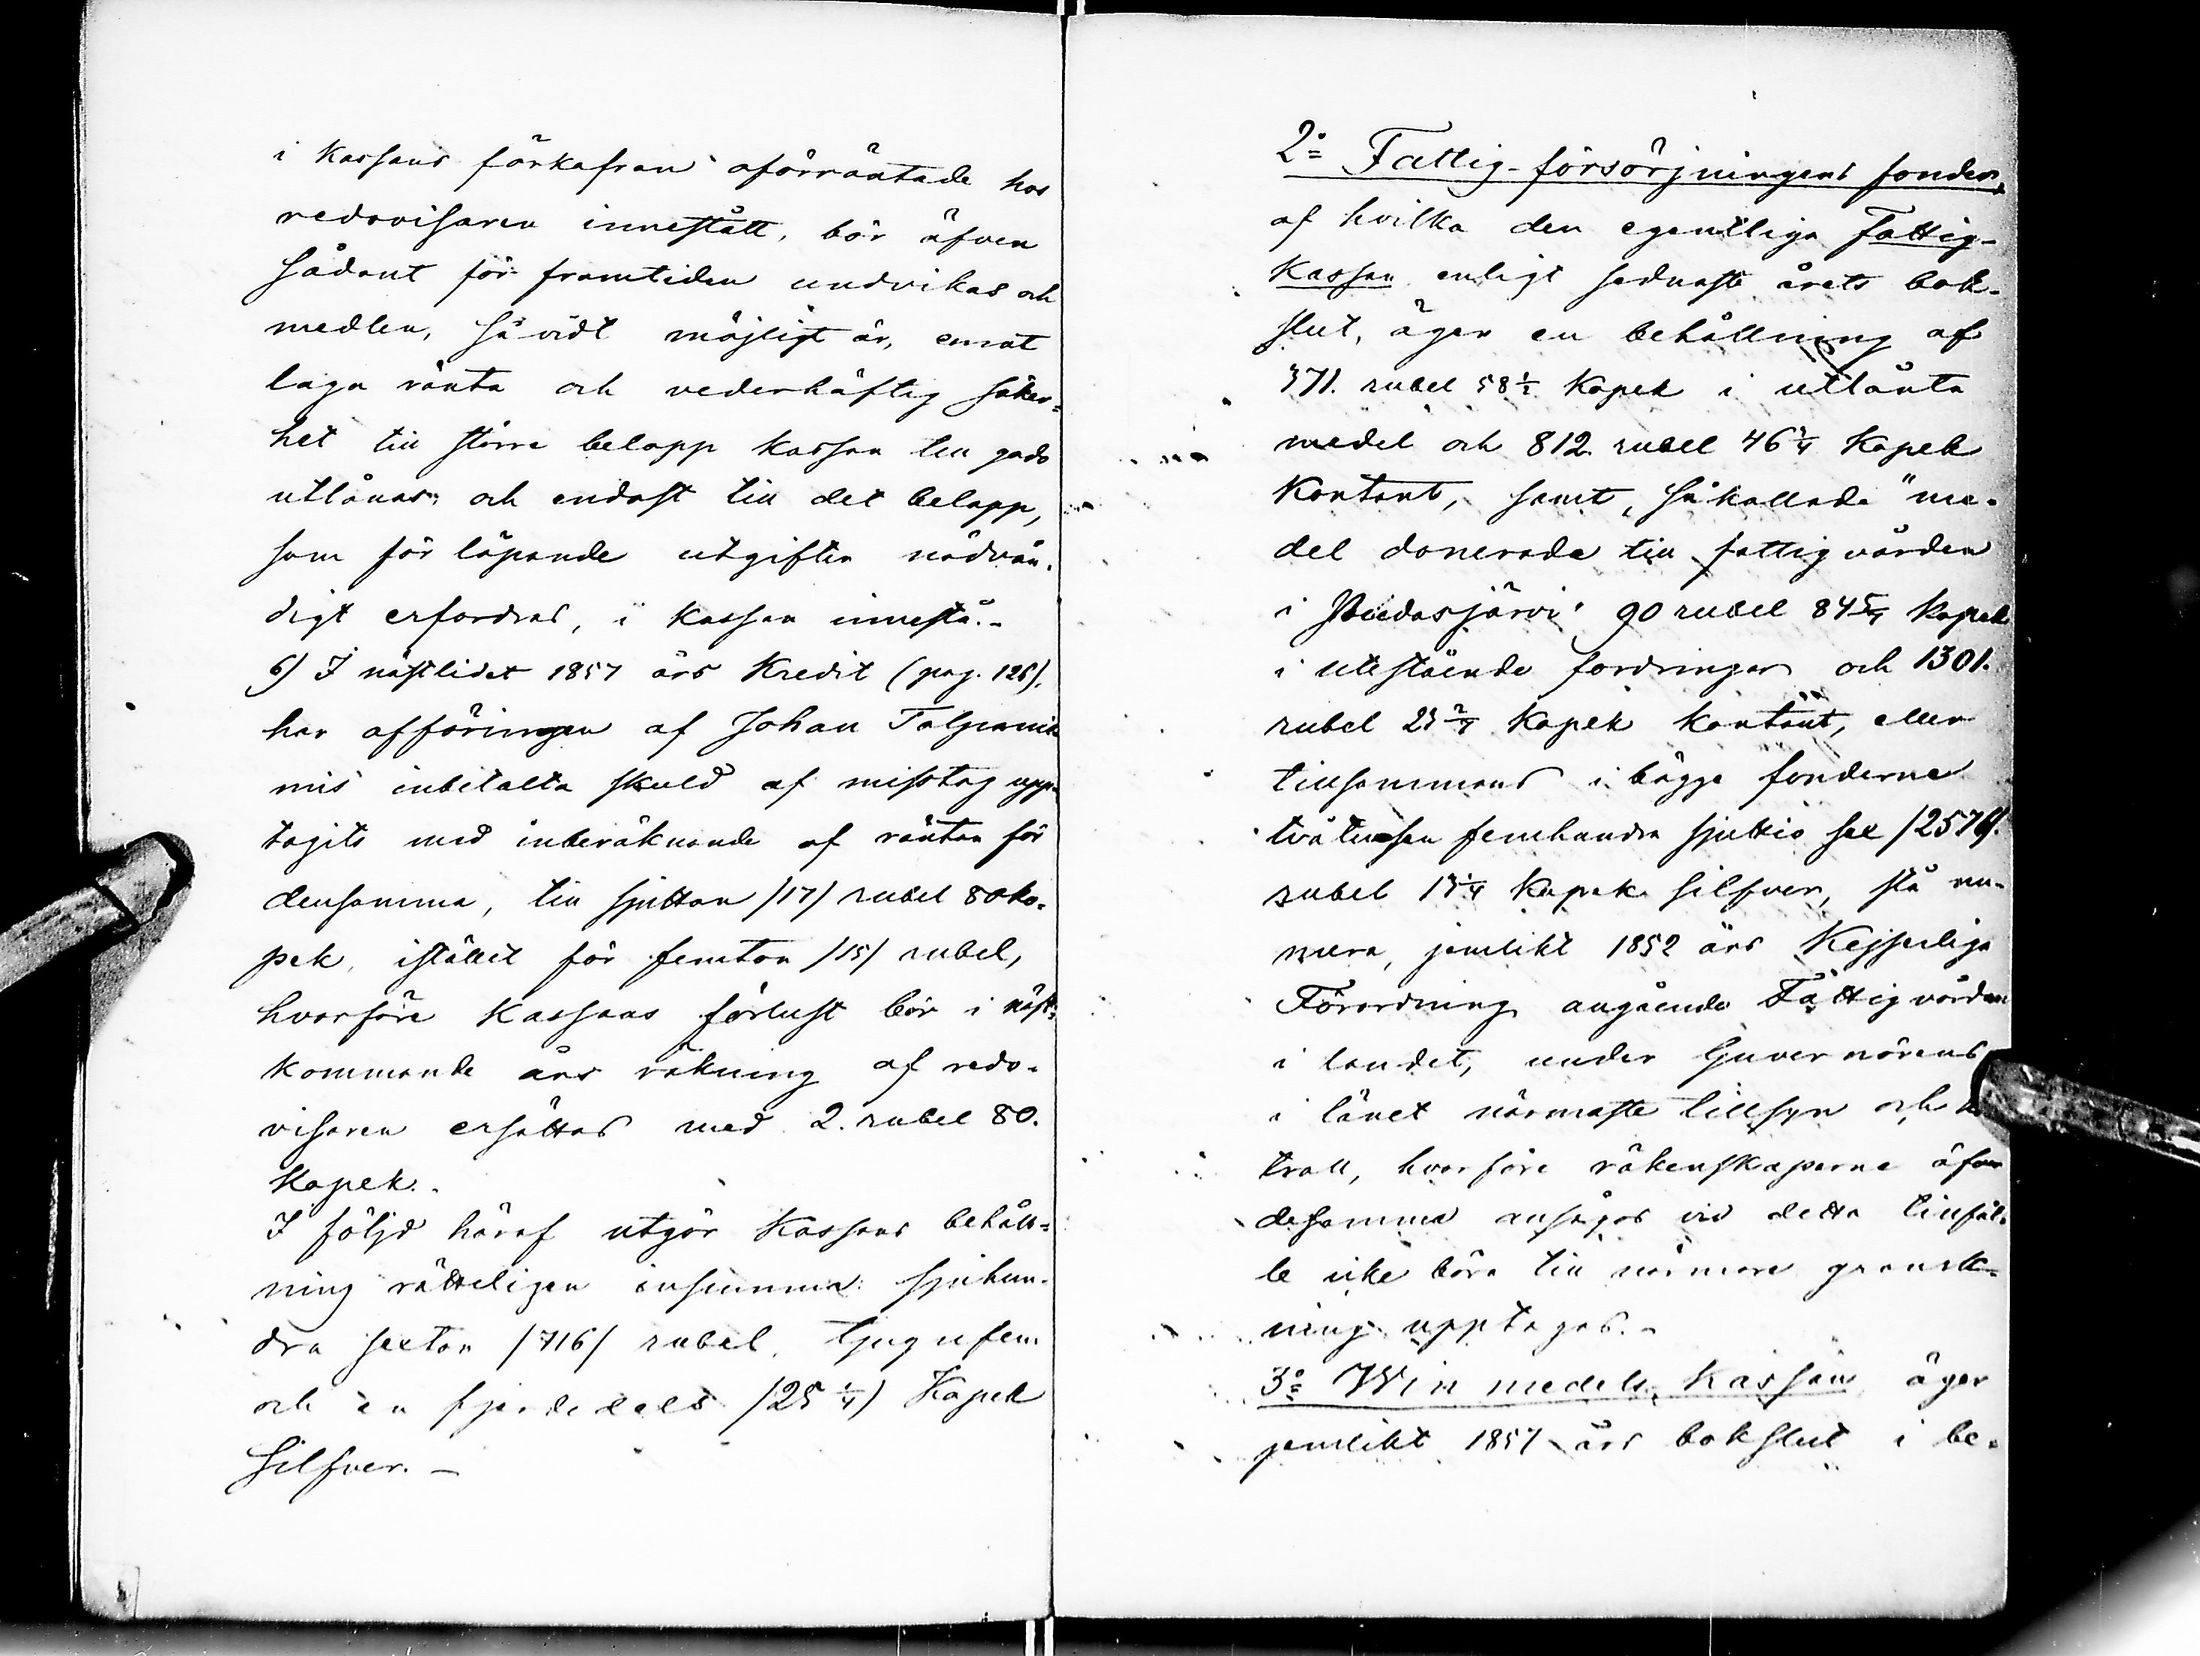 i kassans förkofran oförräntade hos
redovisaren innestått, bör äfven
sådant för framtiden undvikas och
medlen, såvidt möjligt är, emot
laga ränta och vederhäftig säker-
het till större belopp kassan till godo
utlånas, och endast till det belopp,
som för löpande utgifter nödvän-
digt erfordras, i kassan innestå.-
6) I nästlidet 1857 års Kredit (pag. 126),
har afföringen af Johan
inbetalta skuld af misstag upp-
tagits med inberäknande af räntan för
densamma, till sjutton /17/ rubel 80 ko-
pek, istället för femton /15/ rubel,
hvarföre kassans förlust bör i näst-
kommande års räkning af redo-
visaren ersättas med 2. rubel 80.
kopek.
I följd häraf utgör kassans behåll-
ning rätteligen insumma sjuhun-
dra sexton /716/ rubel, tjugufem
och en fjerdedels /25 1/4/ Kopek
Silfver. -
2o Fattig-försörjningens fonder,
af hvilka den egentliga Fattig-
kassan enligt sednaste årets bok-
slut, äger en behållning af
371. rubel 58 1/2 Kopek i utlånta
medel och 812. rubel 46 3/4 Kopek
Kontant, samt, såkallade "me-
del donerade till fattigvården
i Pudasjärvi" 90 rubel 84 Kopek
i utestående fordringar och 1301.
rubel 23 2/4 Kopek kontant, eller
tillsammans i bägge fonderne
tvåtusen femhundra sjuttio sex /2576/.
rubel 13 1/4 Kopek silfver, stå nu-
mera, jemlikt 1852 års Kejserliga
Förordning angående Fattigvården
i landet, under Guvernörens
i länet närmaste tillsyn och
troll, hvarföre räkenskaperne öfver
desamma ansågos vid detta tillfäl-
le icke böra till närmare gransk-
ning upptagas.-
3o Winmedels kassan äger
jemlikt 1857 års bokslut i be-